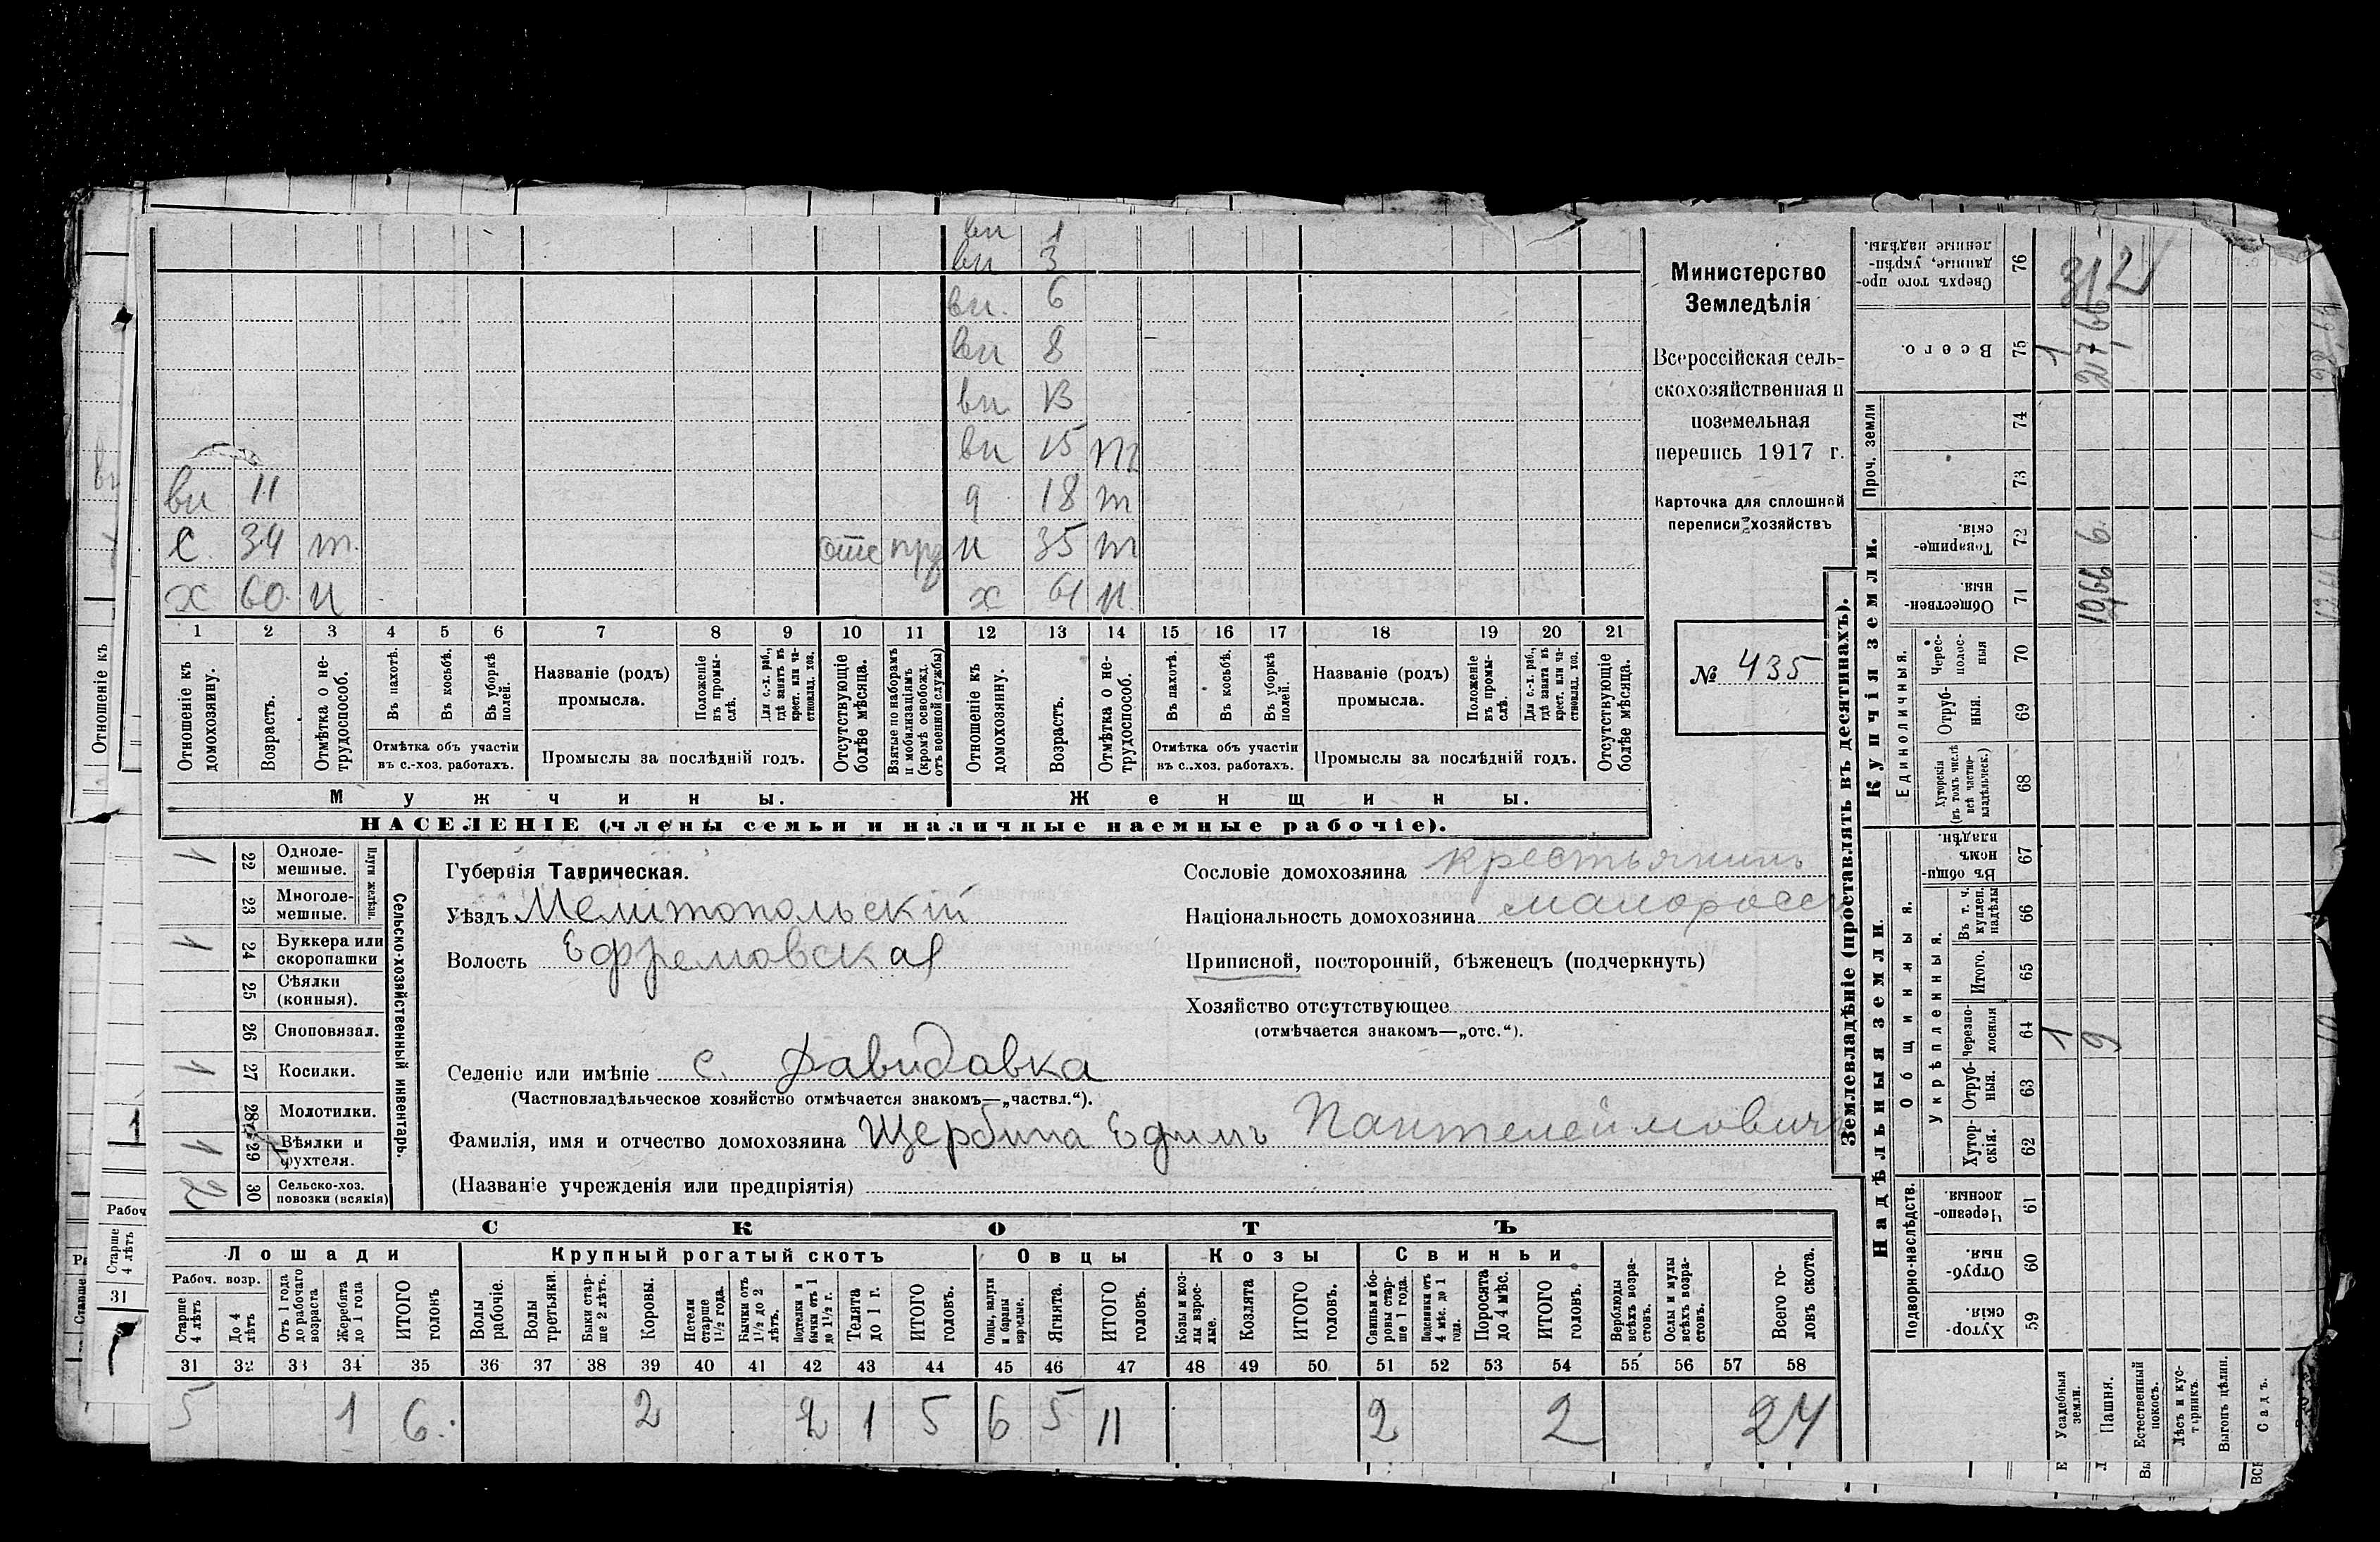 вн 1
вн 3
вн. 6
вн 8
вн 13
вн 15 т
вн 11 д 18 т
с. 34 т. отс н 35 т
х 60. н х 61 н
1 2 3 4 5 6 7 8 9 10 11 12 13 14 15 16 17 18 19 20 21
Отношеніе къ домохозяину.
Возрастъ.
Отмѣтка о не-трудоспособ.
Въ пахотѣ.
Въ косьбѣ.
Въ уборкѣ полей.
Отмѣтка объ участіи
въ с.-хоз. работахъ.
Названіе (родъ)
промысла.
Положеніе въ промы-слѣ.
Для с.-х. раб., гдѣ занятъ въ крест. или ча-стновлад. хоз.
Промыслы за послѣдній годъ.
Отсутствующіе болѣе мѣсяца.
Взятые по наборамъ и мобилизаціямъ (кромѣ освобожд. отъ военной службы)
Отношеніе къ домохозяину.
Возрастъ.
Отмѣтка о не-трудоспособ.
Въ пахотѣ.
Въ косьбѣ.
Въ уборкѣ полей.
Отмѣтка объ участіи
въ с.-хоз. работахъ.
Названіе (родъ)
промысла.
Положеніе въ промы-слѣ.
Для с.-х. раб., гдѣ занята въ крест. или ча-стновлад. хоз.
Промыслы за послѣдній годъ.
Отсутствующіе болѣе мѣсяца.
Мужчины.
Женщины.
НАСЕЛЕНІЕ (члены семьи и наличные наемные рабочіе).
Министерство
Земледѣлія
Всероссійская сель-
скохозяйственная и
поземельная
перепись 1917 г.
Карточка для сплошной
переписи хозяйствъ
№ 435
Сельско-хозяйственный инвентарь.
Плуги желѣзн.
1 22 Одноле-мешные.
23 Многоле-мешные.
1 24 Буккера или скоропашки
25 Сѣялки (конныя).
26 Сноповязал.
1 27 Косилки.
28 Молотилки.
1 29 Вѣялки и фухтеля.
2 30 Сельско-хоз. повозки (всякія)
Губернія Таврическая.
Уѣздъ Мелитопольскій
Волость Ефремовская
Сословіе домохозяина крестьянинъ
Національность домохозяина малоросс
Приписной, посторонній, бѣженецъ (подчеркнуть)
Хозяйство отсутствующее
(отмѣчается знакомъ—„отс.“).
Селеніе или имѣніе с. Давидовка
(Частновладѣльческое хозяйство отмѣчается знакомъ—„частвл.“).
Фамилія, имя и отчество домохозяина Щербина Ефимъ Пантелеймовичъ
(Названіе учрежденія или предпріятія)
СКОТЪ
Лошади
Крупный рогатый скотъ
Овцы
Козы
Свиньи
Рабоч. возр.
Старше 4 лѣтъ
До 4 лѣтъ
Отъ 1 года до рабочаго возраста
Жеребята до 1 года
ИТОГО головъ
Волы рабочіе.
Волы третьяки.
Быки стар-ше 2 лѣтъ.
Коровы.
Нетели старше 1½ года.
Бычки отъ 1½ до 2 лѣтъ.
Подтелки и бычки отъ 1 до 1½ г.
Телята до 1 г.
ИТОГО головъ.
Овцы, валухи и бараны взрослые.
Ягнята.
ИТОГО головъ.
Козы и коз-лы взрос-лые.
Козлята
ИТОГО головъ.
Свиньи и бо-ровы стар-ше 1 года.
Подсвинки отъ 4 мѣс. до 1 года.
Поросята до 4 мѣс.
ИТОГО головъ.
Верблюды всѣхъ возра-стовъ.
Ослы и мулы всѣхъ возра-стовъ.
Всего го-ловъ скота.
31 32 33 34 35 36 37 38 39 40 41 42 43 44 45 46 47 48 49 50 51 52 53 54 55 56 57 58
5 1 6. 2 2 1 5 6 5 11 2 2 24
Землевладѣніе (проставлять въ десятинахъ).
Надѣльныя земли.
Купчія земли.
Проч. земли
Подворно-наслѣдств.
Общинныя.
Укрѣпленныя.
Единоличныя.
Хутор-скія. 59
Отруб-ныя. 60
Черезпо-лосныя 61
Хутор-скія. 62
Отруб-ныя. 63
Черезпо-лосныя 64
Итого. 65
Въ т. ч. куплен. надѣлы 66
Въ общи-номъ владѣн. 67
Хуторскія (въ томъ числѣ всѣ частно-владѣльческ.) 68
Отруб-ныя. 69
Черес-полос-ныя 70
Обществен-ныя 71
Товарище-скія. 72
73
74
Всего. 75
Сверхъ того про-данные, укрѣп-ленные надѣлы. 76
Усадебныя земли. 1 1
Пашня. 9
Естественный покосъ.
Лѣсъ и кус-тарникъ.
Выгонъ цѣлин.
Садъ.
Отношеніе къ
Рабоч
Старше 4 лѣтъ
31